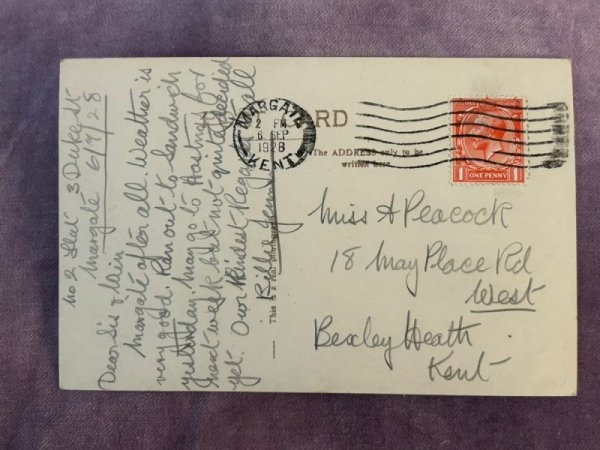 No 2 Flat 3 Duke St
Margate 6/9/28
Dear Sis & Win
Margate after all. Weather is
very good. Ran out to Sandwich
yesterday. May go to Hastings for
next week but not quite decided
yet. Our Kindest Regards to all
Billie
POST CARD
The ADDRESS only to be
written here.
This is a Real
MARGATE
2 PM
6 SEP
1928
KENT
ONE PENNY
Miss A Peacock
18 May Place Rd
West
Bexley Heath.
Kent